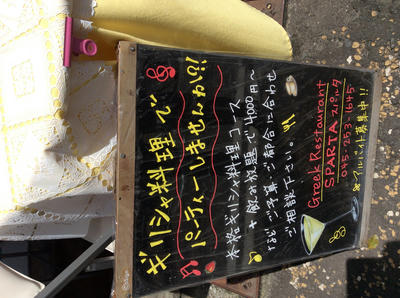 ギリシャ料理で
パーティーしませんか?!
本格ギリシャ料理コース
+飲み放題で4000円〜
など ご予算、ご都合に合わせ
ご相談下さい。
Greek Restaurant
SPARTA スパルタ
075-253-1645
※アルバイト募集中!!